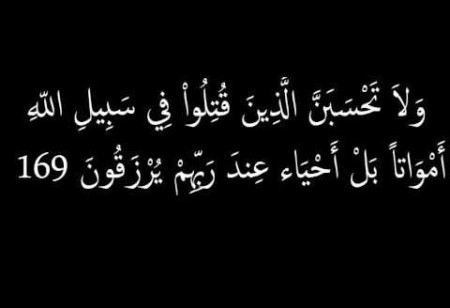 وَلاَ تَحْسَبَنَّ الَّذِينَ قُتِلُواْ فِي سَبِيلِ اللّهِ
أَمْوَاتاً بَلْ أَحْيَاء عِندَ رَبِّهِمْ يُرْزَقُونَ 169